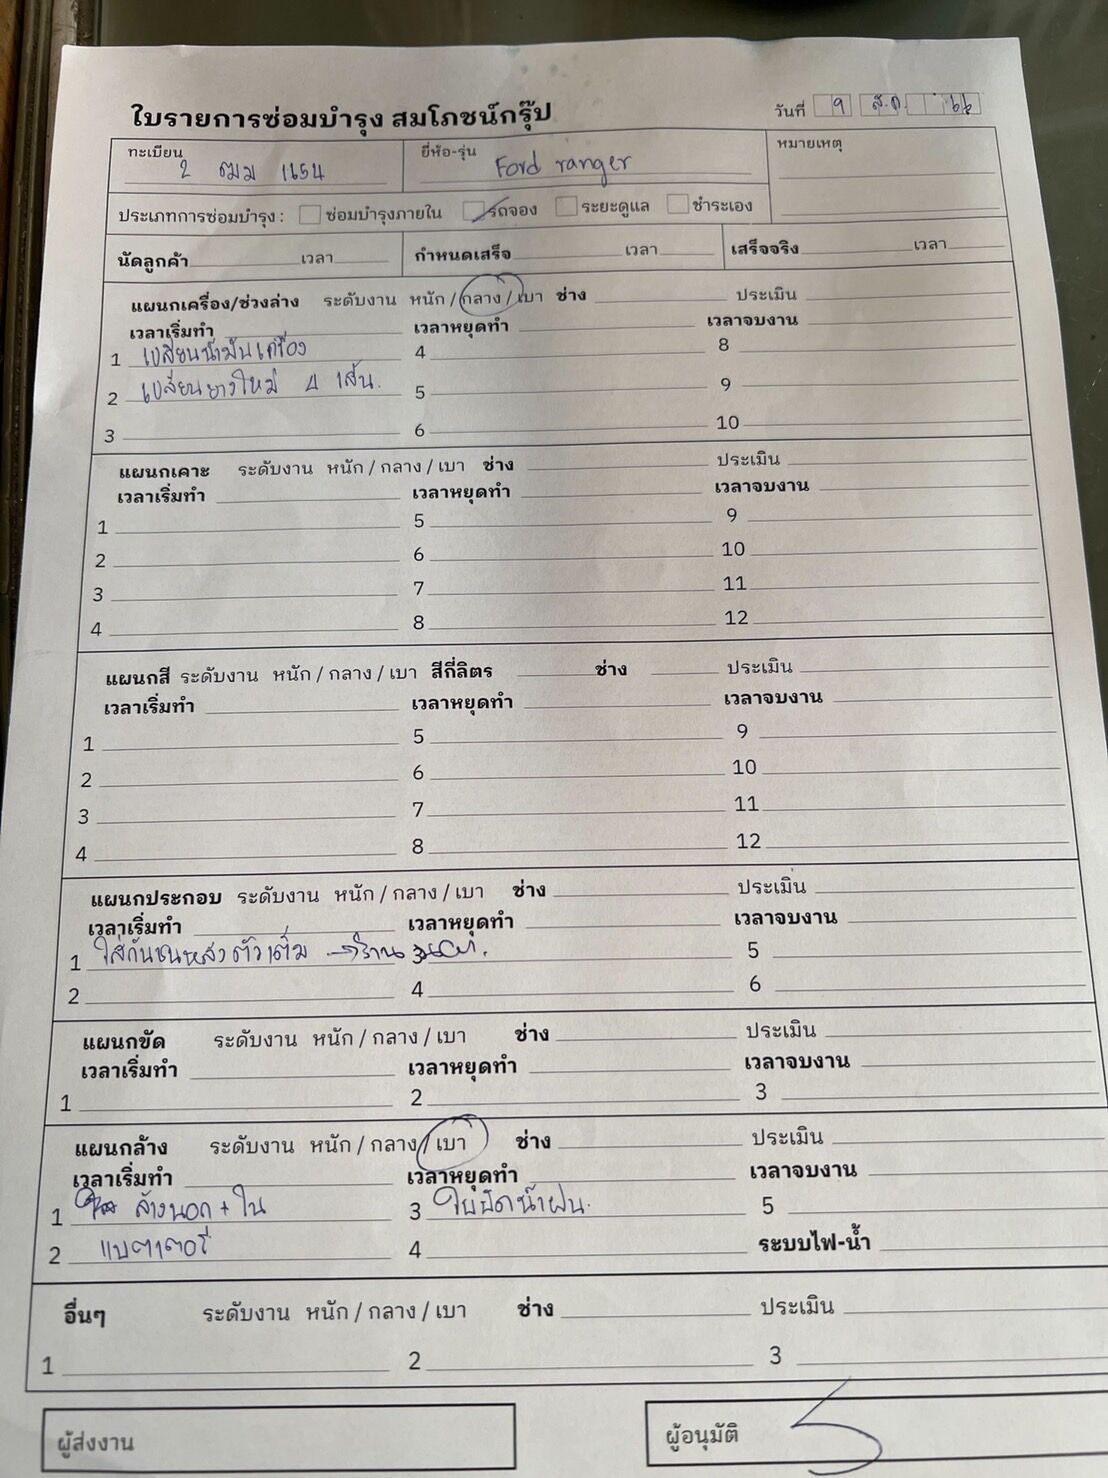 ใบรายการซ่อมบำรุง สมโภชน์กรุ๊ป
วันที่ 9 ส.ค. 66
ทะเบียน 2 ฒม 1654
ยี่ห้อ-รุ่น Ford ranger
หมายเหตุ
ประเภทการซ่อมบำรุง : ซ่อมบำรุงภายใน รถจอง ระยะดูแล ชำระเอง
นัดลูกค้า เวลา กำหนดเสร็จ เวลา เสร็จจริง เวลา
แผนกเครื่อง/ช่วงล่าง ระดับงาน หนัก / กลาง / เบา ช่าง ประเมิน
เวลาเริ่มทำ เวลาหยุดทำ เวลาจบงาน
1 เปลี่ยนน้ำมันเครื่อง 4 8
2 เปลี่ยนยางใหม่ 4 เส้น. 5 9
3 6 10
แผนกเคาะ ระดับงาน หนัก / กลาง / เบา ช่าง ประเมิน
เวลาเริ่มทำ เวลาหยุดทำ เวลาจบงาน
1 5 9
2 6 10
3 7 11
4 8 12
แผนกสี ระดับงาน หนัก / กลาง / เบา สีกี่ลิตร ช่าง ประเมิน
เวลาเริ่มทำ เวลาหยุดทำ เวลาจบงาน
1 5 9
2 6 10
3 7 11
4 8 12
แผนกประกอบ ระดับงาน หนัก / กลาง / เบา ช่าง ประเมิน
เวลาเริ่มทำ เวลาหยุดทำ เวลาจบงาน
1 ใส่กันชนหลังตัวเดิม → ร้าน 3 5
2 4 6
แผนกขัด ระดับงาน หนัก / กลาง / เบา ช่าง ประเมิน
เวลาเริ่มทำ เวลาหยุดทำ เวลาจบงาน
1 2 3
แผนกล้าง ระดับงาน หนัก / กลาง / เบา ช่าง ประเมิน
เวลาเริ่มทำ เวลาหยุดทำ เวลาจบงาน
1 ล้างนอก + ใน 3 ใบปัดน้ำฝน. 5
2 แบตเตอรี่ 4 ระบบไฟ-น้ำ
อื่นๆ ระดับงาน หนัก / กลาง / เบา ช่าง ประเมิน
1 2 3
ผู้ส่งงาน ผู้อนุมัติ